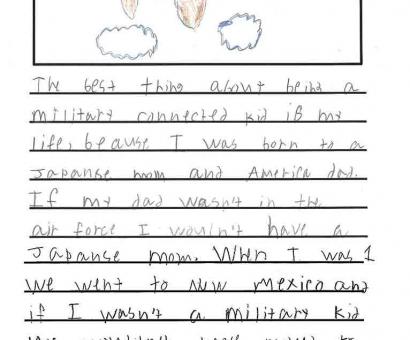 The best thing about being a
military connected kid is my
life, because I was born to a
Japanse mom and America dad.
If my dad wasn't in the
air force I wouln't have a
Japanse mom. When I was 1
we went to New Mexico and
if I wasn't a military kid